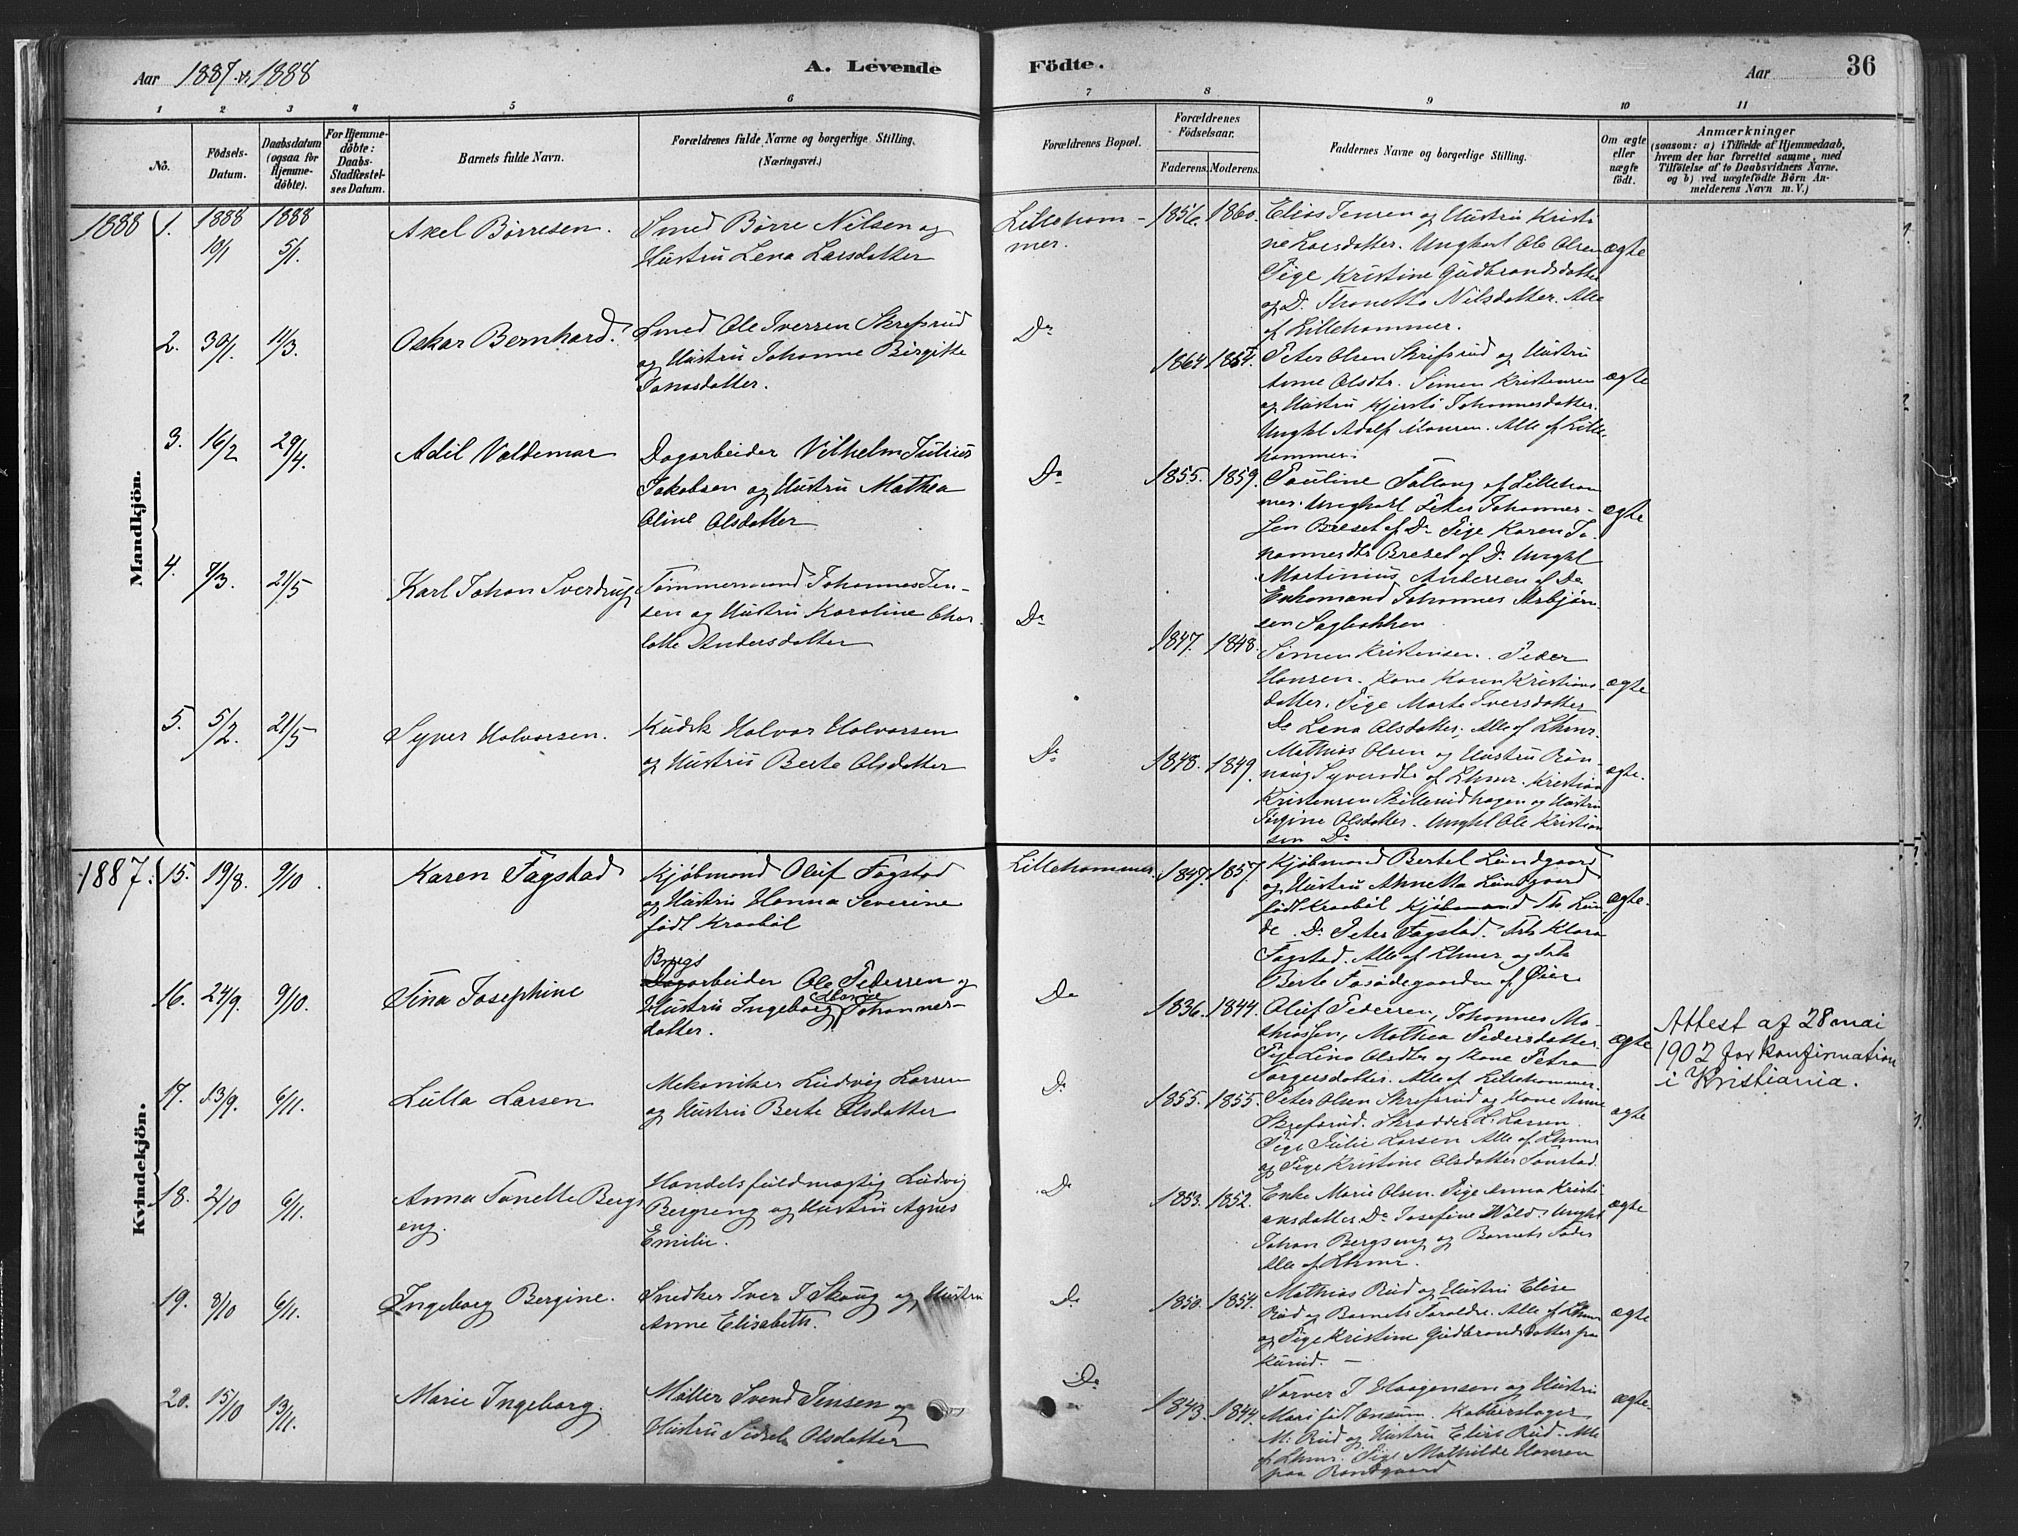 Aar 1887 & 1888
A. Levende
Födte.
Aar
36
1 2 3 4 5 6 7 8 9 10 11
No.
Födsels-Datum.
Daabsdatum (ogsaa for Hjemme-döbte).
For Hjemme-döbte: Daabs-Stadfæstel-ses Datum.
Barnets fulde Navn.
Forældrenes fulde Navne og borgerlige Stilling. (Næringsvei.)
Forældrenes Bopæl.
Forældrenes Födselsaar.
Faderens. Moderens.
Faddernes Navne og borgerlige Stilling.
Om ægte eller uægte födt.
Anmærkninger
(saasom: a) i Tilfælde af Hjemmedaab,
hvem der har forrettet samme, med
Tilföielse af to Daabsvidners Navne,
og b) ved uægtefödte Börn An-
melderens Navn m. V.)
Mandkjön.
1888 1. 1888 10/1 1888 5/1. Axel Børresen.
Smed Børre Nilsen og
Hustru Lena Larsdatter
Lilleham-
mer.
1856. 1860.
Elias Jensen og Hustru Kristi
ne Larsdatter. Ungkarl Ole Olsen
Pige Kristine Gudbrandsdatter
og Do. Thonetta Nilsdatter. Alle
af Lillehammer.
ægte
2. 30/1. 11/3. Oskar Bernhard.
Smed Ole Iversen Skrefsrud
og Hustru Johanne Birgitte
Jonasdatter.
Do
1864 1854.
Peter Olsen Skrefsrud og Hustru
Anne Olsdtr. Simen Kristensen
og Hustru Kjersti Johannesdatter.
Ungkl Adolf Hansen. Alle af Lille-
hammer.
ægte
3. 16/2 29/4. Adil Valdemar
Dagarbeider Vilhelm Julius
Jakobsen og Hustru Mathea
Oline Olsdatter
Do
1855. 1859.
Pauline Fallang af Lilleham
mer. Ungkarl Peter Johannes-
sen Breset af Do Pige Karen Jo-
hannesdtr Breset af Do. Ungkl
Martinius Andersen af Do
Enkemand Johannes Asbjørn
sen Sagbakken
ægte
4. 7/3. 21/5 Karl Johan Sverdrup
Tømmermand Johannes Jen-
sen og Hustru Karoline Char-
lotte Andersdatter
Do
1847. 1848.
Simen Kristensen. Peder
Hansen. Kone Karen Kristians-
datter. Pige Marte Iversdatter
Do Lena Olsdatter. Alle af Lhmr.
ægte
5. 5/2. 21/5 Syver Halvorsen.
Kudsk Halvor Halvorsen
og Hustru Berte Olsdatter
Do
1848. 1849.
Mathias Olsen og Hustru Røn-
naug Syversdtr af Lhmr. Kristian
Kristensen Skillerudhagen og Hustru
Jørgine Olsdatter. Ungkl Ole Kristian
sen Do
ægte.
Kvindekjön.
1887. 15. 19/8. 9/10. Karen Fagstad
Kjøbmand Oluf Fagstad
og Hustru Hanna Severine
født Kraabøl
Lillehammer.
1847. 1857.
Kjøbmand Bertel Lundgaard
og Hustru Annetta Lundgaard
født Kraabøl Kjøbmand Th Lun-
de. Do. Peter Fagstad. Frk Klara
Fagstad. Alle af Lhmr og Frk
Berte af Øier
ægte.
16. 24/9. 9/10. Tina Josephine
Brugs
Dagarbeider Ole Pedersen og
Hustru Ingeborg Marie Johannes-
datter.
Do
1836. 1844.
Oluf Pedersen, Johannes Ma-
thiassen, Mathea Pedersdatter.
Pige Lina Olsdtr og Kone Petra
Torgersdatter. Alle af Lillehammer.
ægte
Attest af 28 mai
1902 for konfirmation
i Kristiania.
17. 13/9. 6/11. Lulla Larsen
Mekaniker Ludvig Larsen
og Hustru Berte Olsdatter
Do
1855. 1855.
Peter Olsen Skrefsrud og Kone Anne
Skrefsrud. Skrædder L. Larsen.
Pige Julie Larsen Alle af Lhmr
og Pige Kristine Olsdatter Sønstad.
ægte
18. 2/10 6/11. Anna Tonette Bergs
eng.
Handelsfuldmægtig Ludvig
Bergseng og Hustru Agnes
Emilie.
Do
1853. 1852.
Enke Marie Olsen. Pige Anna Kristi-
ansdatter Do Josefine Wold. Ungkl
Johan Bergseng og Barnets Fader
Alle af Lhmr.
ægte
19. 8/10 6/11. Ingeborg Bergine.
Snedker Iver J Skaug og Hustru
Anne Elisabeth.
Do
1850. 1854.
Mathias Rud og Hustru Elise
Rud og Barnets Forældre. Alle af Lhmr
og Pige Kristine Gudbrandsdatter paa
Kurud. —
ægte
20. 15/10 13/11. Marie Ingeborg.
Møller Svend Jensen og
Hustru Sidsel Olsdatter
Do
1843. 1844.
Farver J Haagensen og Hustru
Mari født Onsum. Kobberslager
M. Rud og Hustru Elise Rud. Alle
af Lhmr. Pige Mathilde Hansen
paa
ægte.